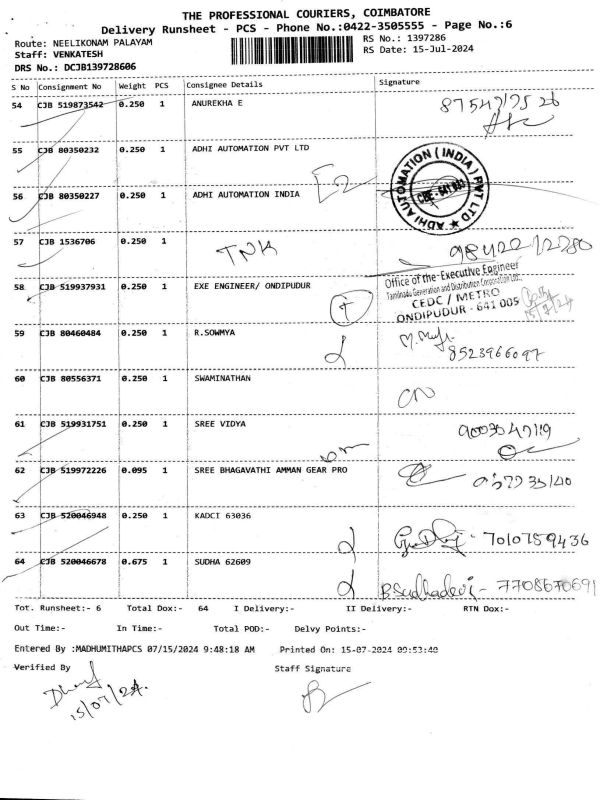 THE PROFESSIONAL COURIERS, COIMBATORE
Delivery Runsheet - PCS - Phone No.:0422-3505555 - Page No.:6
Route: NEELIKONAM PALAYAM
RS No.: 1397286
Staff: VENKATESH
RS Date: 15-Jul-2024
DRS No.: DCJB139728606
S No Consignment No Weight PCS Consignee Details Signature
54 CJB 519873542 0.250 1 ANUREKHA E
55 CJB 80350232 0.250 1 ADHI AUTOMATION PVT LTD
ADHI AUTOMATION (INDIA) PVT LTD ★
56 CJB 80350227 0.250 1 ADHI AUTOMATION INDIA
57 CJB 1536706 0.250 1
58 CJB 519937931 0.250 1 EXE ENGINEER/ ONDIPUDUR
Office of the Executive Engineer
Tamilnadu Generation and Distribution Corporation Ltd.,
CEDC / METRO
ONDIPUDUR - 641 005
15/7/24
59 CJB 80460484 0.250 1 R.SOWMYA
8523966097
60 CJB 80556371 0.250 1 SWAMINATHAN
61 CJB 519931751 0.250 1 SREE VIDYA
62 CJB 519972226 0.095 1 SREE BHAGAVATHI AMMAN GEAR PRO
63 CJB 520046948 0.250 1 KADCI 63036
7010759436
64 CJB 520046678 0.675 1 SUDHA 62609
B.Sudhadevi - 7708670691
Tot. Runsheet:- 6 Total Dox:- 64 I Delivery:- II Delivery:- RTN Dox:-
Out Time:- In Time:- Total POD:- Delvy Points:-
Entered By :MADHUMITHAPCS 07/15/2024 9:48:18 AM Printed On: 15-07-2024 09:53:40
Verified By Staff Signature
15/07/24.